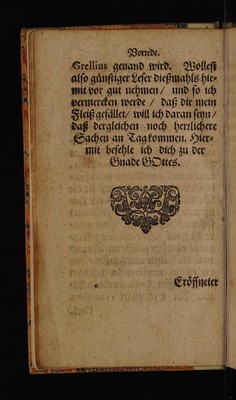 Vorrede.
Stellius genand wird. Wollest
also günstiger Leser dießmahls hie-
mit vor gut nehmen / und so ich
vermercken werde / daß dir mein
Fleiß gefället / will ich daran seyn /
daß dergleichen noch herrlichere
Sachen an Tag kommen. Hier-
mit befehle ich dich zu der
Gnade GOttes.
Eröffneter